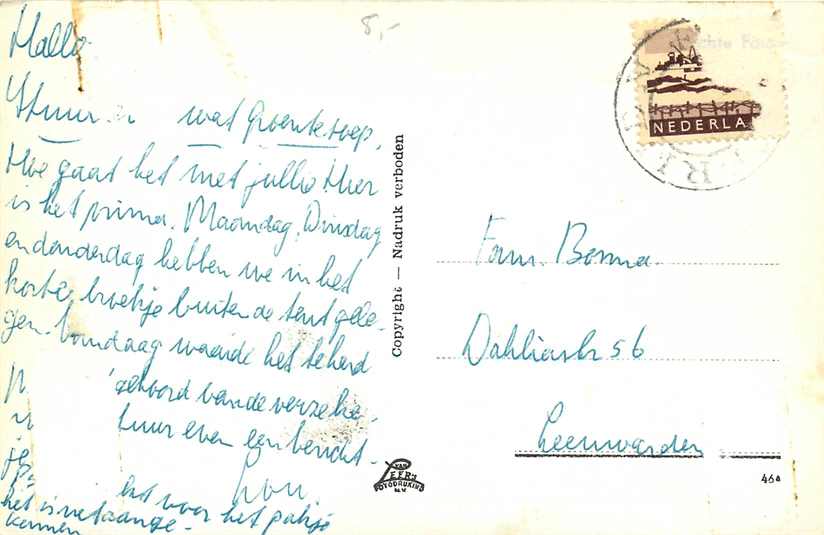 8,-
Hallo
Stuur er wat Groentesoep,
Hoe gaat het met jullie Hier
is het prima. Maandag, Dinsdag
en donderdag hebben we in het
korte broekje buiten de tent gele-
gen. Vandaag waaide het te hard
gehoord van de verzeke-
tuur even een bericht-
het voor het pakje
het is net aange-
komen
Copyright — Nadruk verboden
VAN
LEER'S
FOTODRUKIND
N.V.
NEDERLA
Fam. Bosma.
Dahliastr 56
Leeuwarden
46a